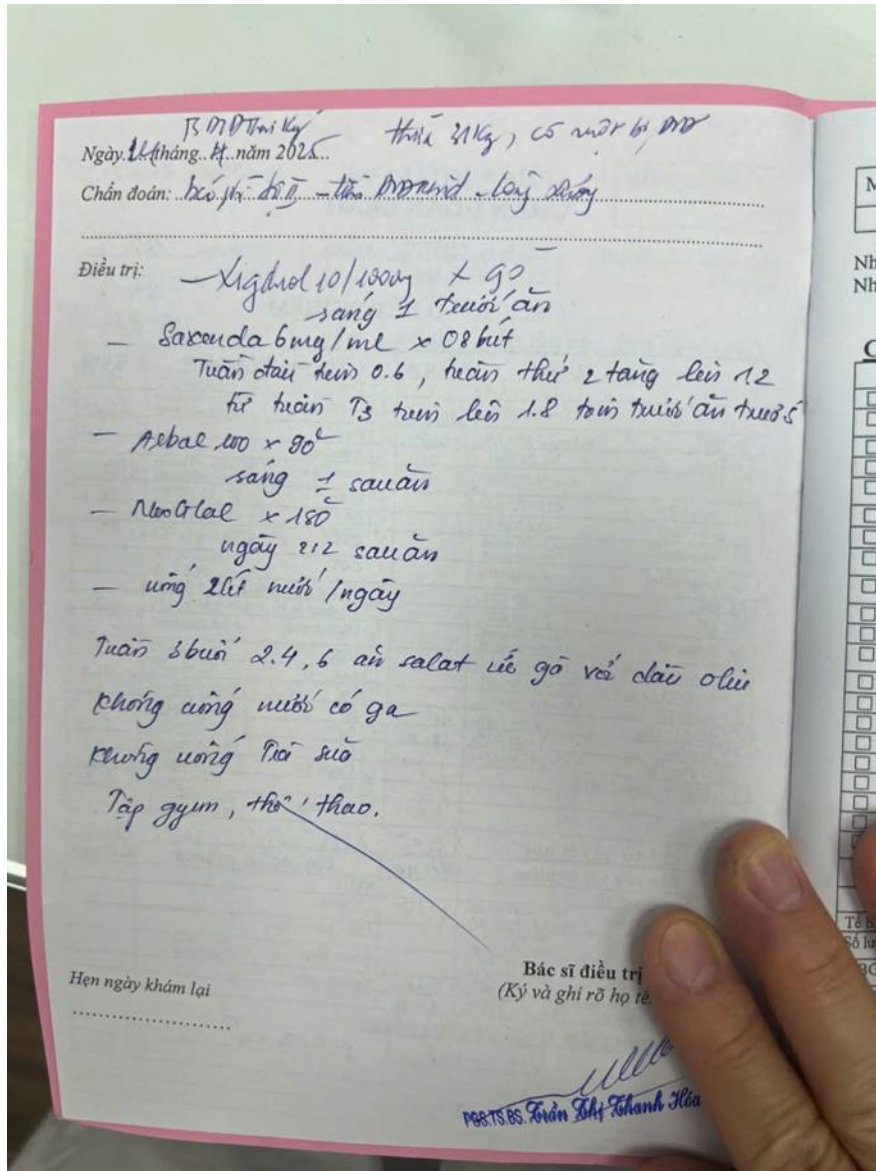 ĐTĐ Thai kỳ thừa 31kg, có mẹ bị ĐTĐ
Ngày 24 tháng 11 năm 2025
Chẩn đoán: béo phì độ II - tiền
Điều trị:
— Xigduo 10/1000mg x 90
sáng 1 trước ăn
— Saxenda 6mg/ml x 08 bút
Tuần đầu tiêm 0.6, tuần thứ 2 tăng lên 1.2
từ tuần T3 tiêm lên 1.8 tiêm trước ăn
— x 90
sáng 1 sau ăn
— x 180
ngày 2:2 sau ăn
— uống 2 lít nước/ngày
Tuần 3 buổi 2.4,6 ăn salat ức gà với dầu oliu
Không uống nước có ga
Không uống Trà sữa
Tập gym, thể thao.
Hẹn ngày khám lại
Bác sĩ điều trị
(Ký và ghi rõ họ tê
PGS.TS.BS. Trần Thị Thanh Hóa